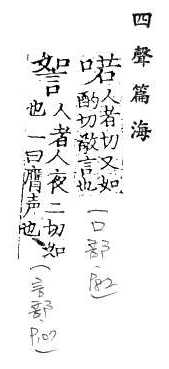 四聲篇海
喏
人者切又如
酌切敬言也
(口部, P.82)
人者人夜二切如
也一曰膺声也
(言部, P.107)